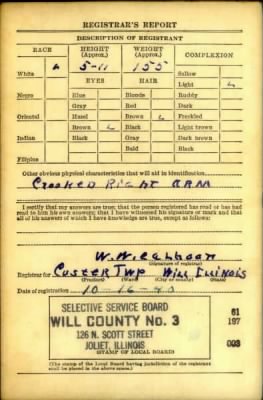 REGISTRAR'S REPORT
DESCRIPTION OF REGISTRANT
RACE
HEIGHT
(Approx.)
WEIGHT
(Approx.)
COMPLEXION
White
5-11
155
Sallow
EYES
HAIR
Light
Negro
Blue
Blonde
Ruddy
Gray
Red
Dark
Oriental
Hazel
Brown
Freckled
Brown
Black
Light brown
Indian
Black
Gray
Dark brown
Bald
Black
Filipino
Other obvious physical characteristics that will aid in identification
CROOKED RIGHT ARM
I certify that my answers are true; that the person registered has read or has had
read to him his own answers; that I have witnessed his signature or mark and that
all of his answers of which I have knowledge are true, except as follows:
(Signature of registrar)
Registrar for CUSTER TWP WILL ILLINOIS
(Precinct) (Ward) (City or county) (State)
Date of registration 10-16-40
SELECTIVE SERVICE BOARD
WILL COUNTY No. 3
126 N. SCOTT STREET
JOLIET, ILLINOIS
(STAMP OF LOCAL BOARD)
61
197
003
(The stamp of the Local Board having jurisdiction of the registrant
shall be placed in the above space.)